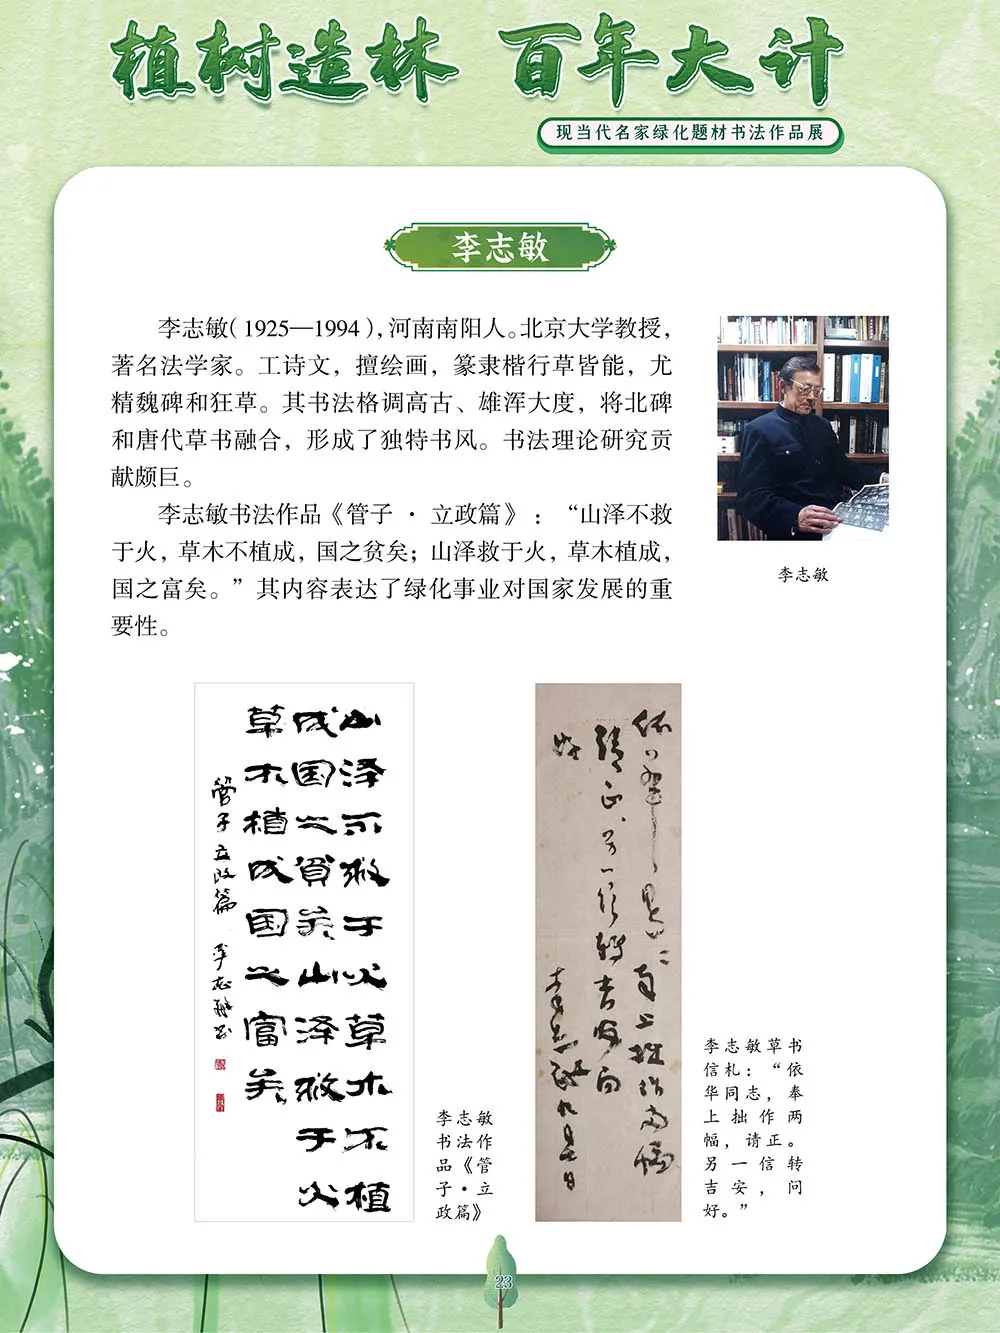 植树造林 百年大计
现当代名家绿化题材书法作品展
李志敏
李志敏（1925—1994），河南南阳人。北京大学教授，
著名法学家。工诗文，擅绘画，篆隶楷行草皆能，尤
精魏碑和狂草。其书法格调高古、雄浑大度，将北碑
和唐代草书融合，形成了独特书风。书法理论研究贡
献颇巨。
李志敏书法作品《管子·立政篇》：“山泽不救
于火，草木不植成，国之贫矣；山泽救于火，草木植成，
国之富矣。”其内容表达了绿化事业对国家发展的重
要性。
李志敏
山泽不救于火草木不植
成国之贫矣山泽救于火
草木植成国之富矣
管子立政篇 李志敏书
李志敏
书法作
品《管
子·立
政篇》
李志敏草书
信札：“依
华同志，奉
上拙作两
幅，请正。
另一信转
吉安，问
好。”
23